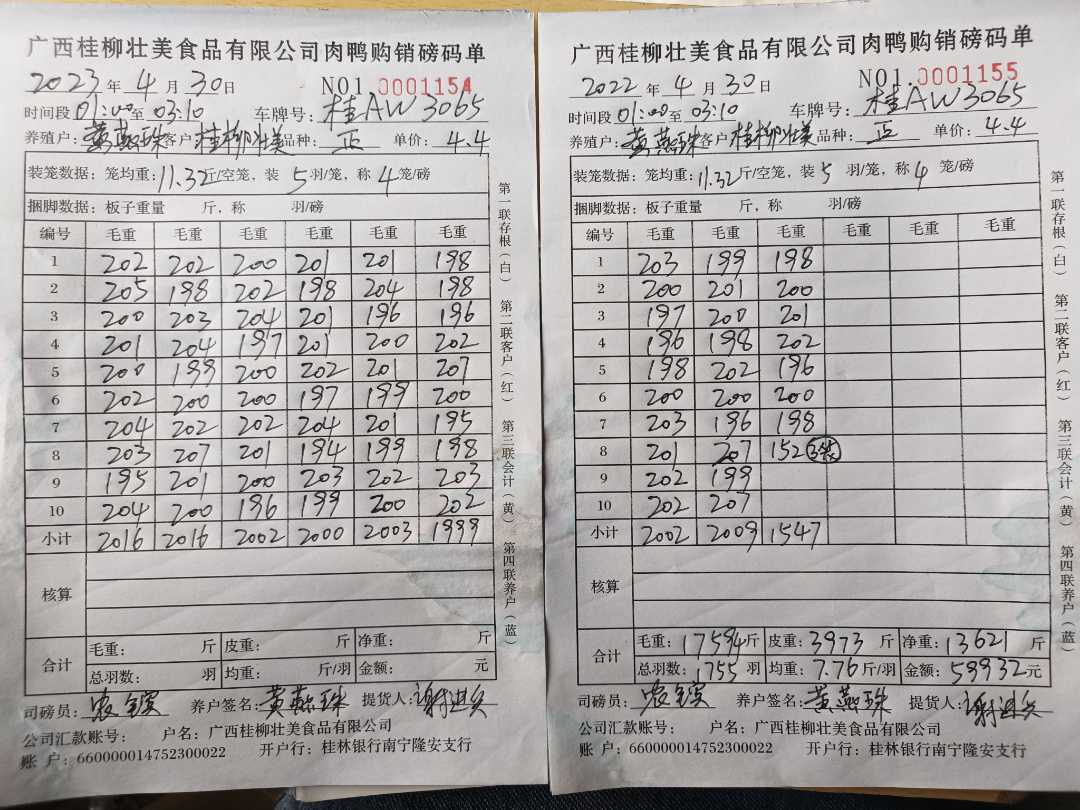 广西桂柳壮美食品有限公司肉鸭购销磅码单
2023 年 4 月 30 日 NO1. 0001154
时间段 01:00 至 03:10 车牌号: 桂AW3065
养殖户: 黄燕珠 客户 桂柳壮美 品种: 正 单价: 4.4
装笼数据: 笼均重: 11.32 斤/空笼, 装 5 羽/笼, 称 4 笼/磅
捆脚数据: 板子重量 斤, 称 羽/磅
编号 毛重 毛重 毛重 毛重 毛重 毛重
1 202 202 200 201 201 198
2 205 198 202 198 204 198
3 200 203 204 201 196 196
4 201 204 197 201 200 202
5 200 199 200 202 201 207
6 202 200 200 197 199 200
7 204 202 202 204 201 195
8 203 207 201 194 199 198
9 195 201 200 203 202 203
10 204 200 196 199 200 202
小计 2016 2016 2002 2000 2003 1999
核算
合计 毛重: 斤 皮重: 斤 净重: 斤
总羽数: 羽 均重: 斤/羽 金额: 元
司磅员: 养户签名: 黄燕珠 提货人:
公司汇款账号: 户名: 广西桂柳壮美食品有限公司
账 户: 660000014752300022 开户行: 桂林银行南宁隆安支行
第一联存根(白) 第二联客户(红) 第三联会计(黄) 第四联养户(蓝)
广西桂柳壮美食品有限公司肉鸭购销磅码单
2022 年 4 月 30 日 NO1. 0001155
时间段 01:00 至 03:10 车牌号: 桂AW3065
养殖户: 黄燕珠 客户 桂柳壮美 品种: 正 单价: 4.4
装笼数据: 笼均重: 11.32 斤/空笼, 装 5 羽/笼, 称 4 笼/磅
捆脚数据: 板子重量 斤, 称 羽/磅
编号 毛重 毛重 毛重 毛重 毛重 毛重
1 203 199 198
2 200 201 200
3 197 200 201
4 196 198 202
5 198 202 196
6 200 200 200
7 203 196 198
8 201 207 152
9 202 199
10 202 207
小计 2002 2009 1547
核算
合计 毛重: 17594 斤 皮重: 3973 斤 净重: 13621 斤
总羽数: 1755 羽 均重: 7.76 斤/羽 金额: 59932 元
司磅员: 养户签名: 黄燕珠 提货人:
公司汇款账号: 户名: 广西桂柳壮美食品有限公司
账 户: 660000014752300022 开户行: 桂林银行南宁隆安支行
第一联存根(白) 第二联客户(红) 第三联会计(黄) 第四联养户(蓝)